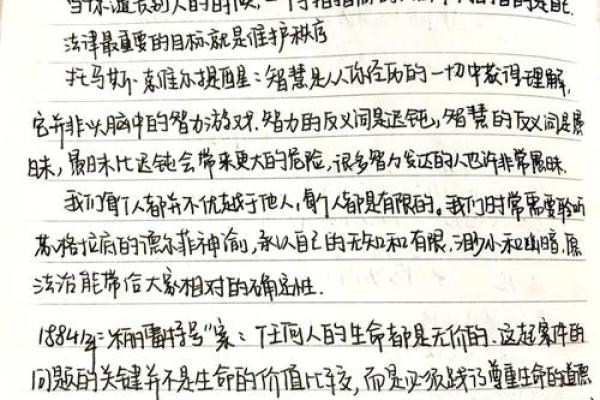 法律最重要的目标就是维护秩序
托马斯·索维尔提醒：智慧是从你经历的一切中获得理解，
它并非头脑中的智力游戏。智力的反义词是迟钝，智慧的反义词是愚
昧，愚昧比迟钝会带来更大的危险，很多智力发达的人也许非常愚昧。
我们每个人都并不优越于他人，每个人都是有限的。我们时常需要聆听
苏格拉底的德尔菲神谕，承认自己的无知和有限，渺小和幽暗，愿
法治能带给大家相对的确定性。
1884年："米丽雷特号"案：任何人的生命都是无价的。这起案件的
问题的关键并不是生命的价值比较，而是必须践行尊重生命的道德